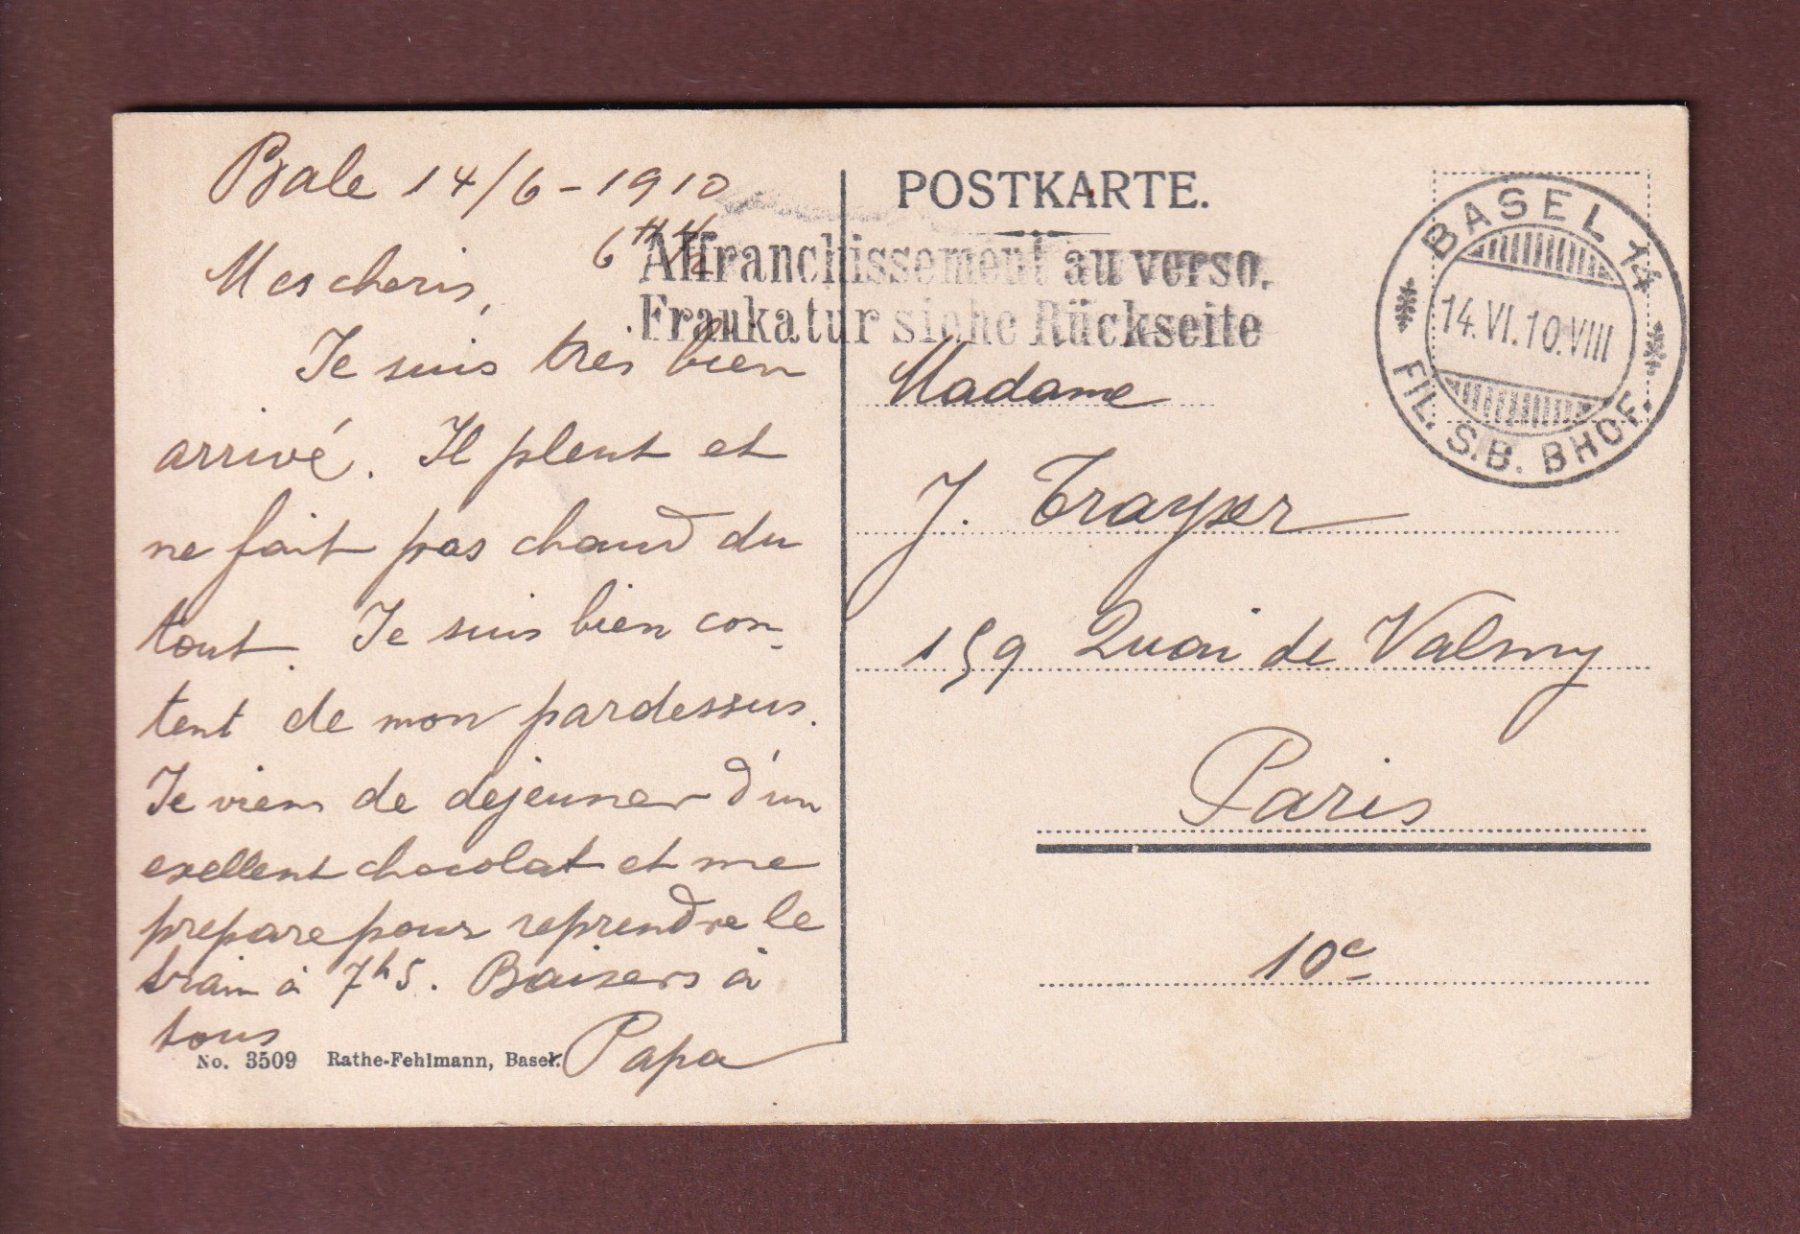 Bale 14/6 - 1910
6 H 1/2
Mes cheris,
Je suis tres bien
arrivé. Il pleut et
ne fait pas chaud du
tout. Je suis bien con-
tent de mon pardessus.
Je viens de dejeuner d'un
exellent chocolat et me
prepare pour reprendre le
train à 7h5. Baisers à
tous
Papa
No. 3509 Rathe-Fehlmann, Basel.
POSTKARTE.
Affranchissement au verso.
Frankatur siehe Rückseite
BASEL 14
14.VI.10.VIII
FIL. S.B. BHOF.
Madame
J. Trayser
159 Quai de Valmy
Paris
10e